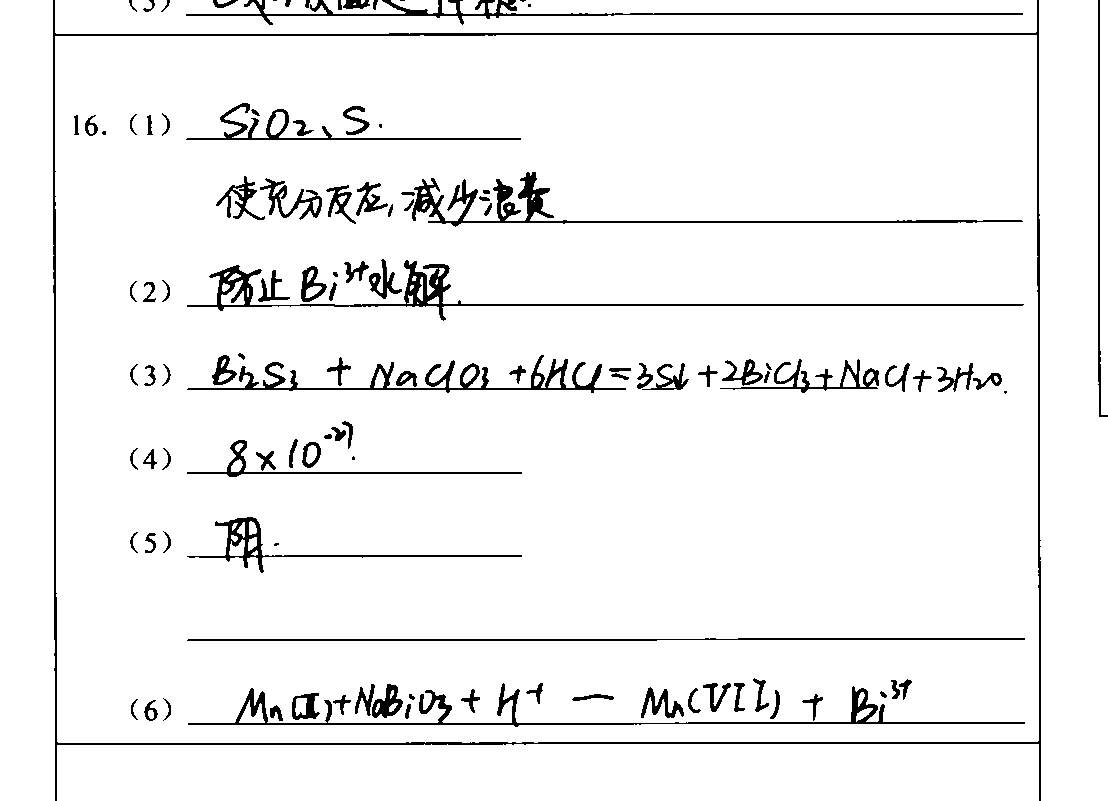 (5)
16. (1) SiO2、S.
使充分反应,减少浪费.
(2) 防止Bi³⁺水解.
(3) Bi2S3 + NaClO3 +6HCl=3S↓+2BiCl3+NaCl+3H2O.
(4) 8×10⁻²⁷.
(5) 阴.
(6) Mn(II)+NaBiO3 + H⁺ — Mn(VII) + Bi³⁺